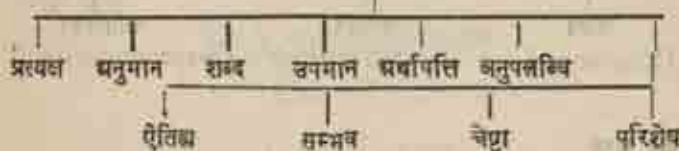 प्रत्यक्ष अनुमान शब्द उपमान अर्थापत्ति अनुपलब्धि
ऐतिह्य सम्भव चेष्टा परिशेष